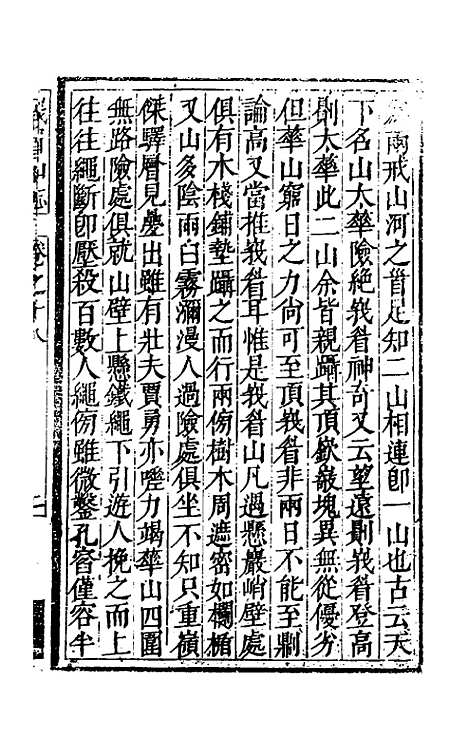 兩戒山河之首足知二山相連卽一山也古云天
下名山太華險絶峩眉神奇又云望遠則峩眉登高
則太華此二山余皆親躡其頂嶔巖塊異無從優劣
但華山窮日之力尙可至頂峩眉非兩日不能至鬭
論高又當推峩眉耳惟是峩眉山凡遇懸巖峭壁處
俱有木棧鋪墊躡之而行兩傍樹木周遮密如欄楯
又山多陰雨白霧瀰漫人過險處俱坐不知只重嶺
傑驛層見疊出雖有壯夫賈勇亦噬力竭華山四圍
無路險處俱就山壁上懸鐵繩下引遊人挽之而上
往往繩斷卽壓殺百數人繩傍雖微鑿孔容僅容半
峩眉山志 卷之十八